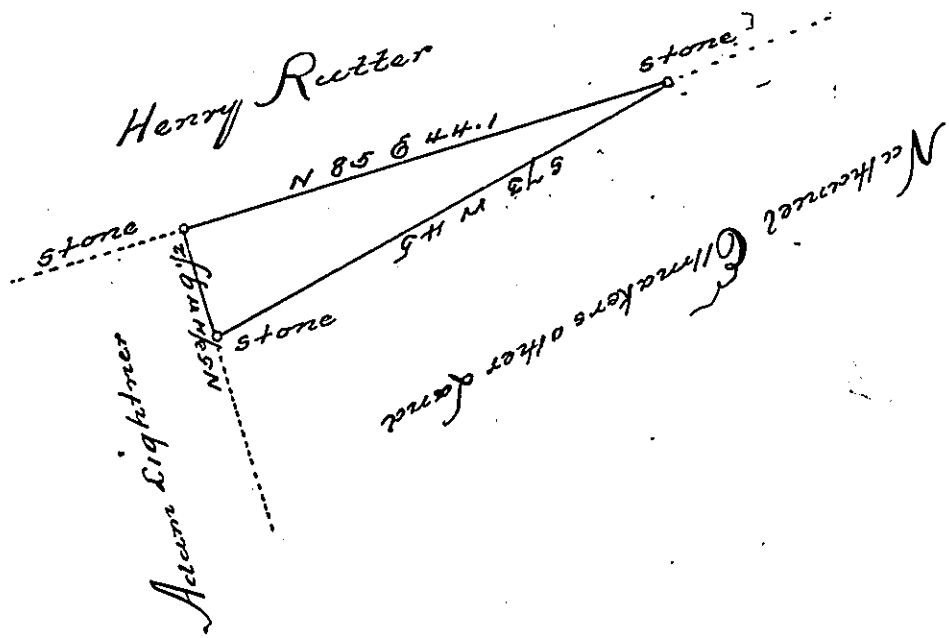 Henry Rutter
stone
N 85 E 44.1
stone
S 73 W 45
stone
Adam Lightner
Nathaniel Ellmakers other Land